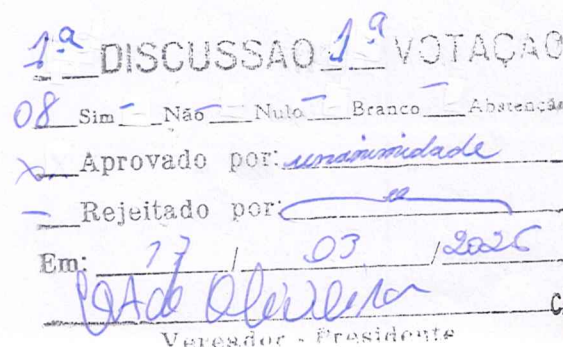 1ª DISCUSSAO 1ª VOTAÇAO
08 Sim - Não - Nulo - Branco - Abstençã
x Aprovado por: unanimidade
- Rejeitado por:
Em: 17 / 03 / 2026
de Oliveira
Vereador - Presidente